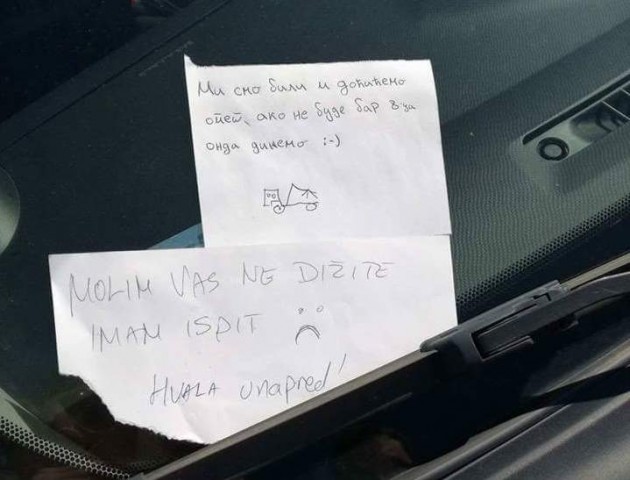 Ми смо били и доћићемо
опет, ако не буде бар 8-ца
онда дижемо :-)
MOLIM VAS NE DIŽITE
IMAM ISPIT
HVALA unapred!